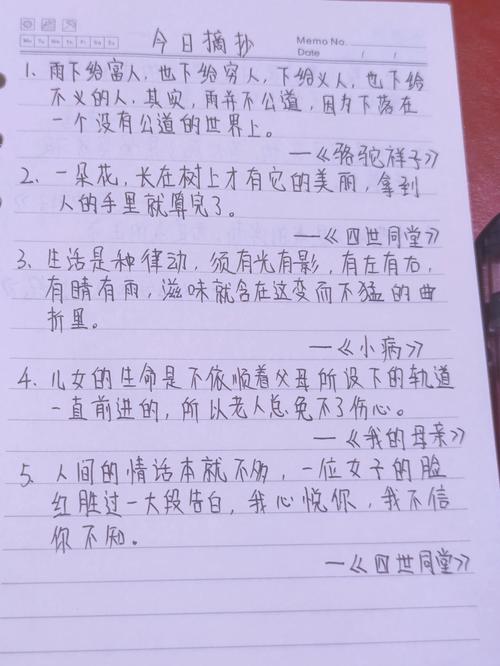 今日摘抄
Memo No.
Mo Tu We Th Fr Sa Su
Date / /
1、雨下给富人,也下给穷人,下给义人,也下给
不义的人,其实,雨并不公道,因为下落在
一个没有公道的世界上。
—《骆驼祥子》
2、一朵花,长在树上才有它的美丽,拿到
人的手里就算完了。
—《四世同堂》
3、生活是种律动,须有光有影,有左有右,
有晴有雨,滋味就含在这变而不猛的曲
折里。
—《小病》
4、儿女的生命是不依顺着父母所设下的轨道
一直前进的,所以老人总免不了伤心。
—《我的母亲》
5、人间的情话本就不多,一位女子的脸
红胜过一大段告白,我心悦你,我不信
你不知。
—《四世同堂》